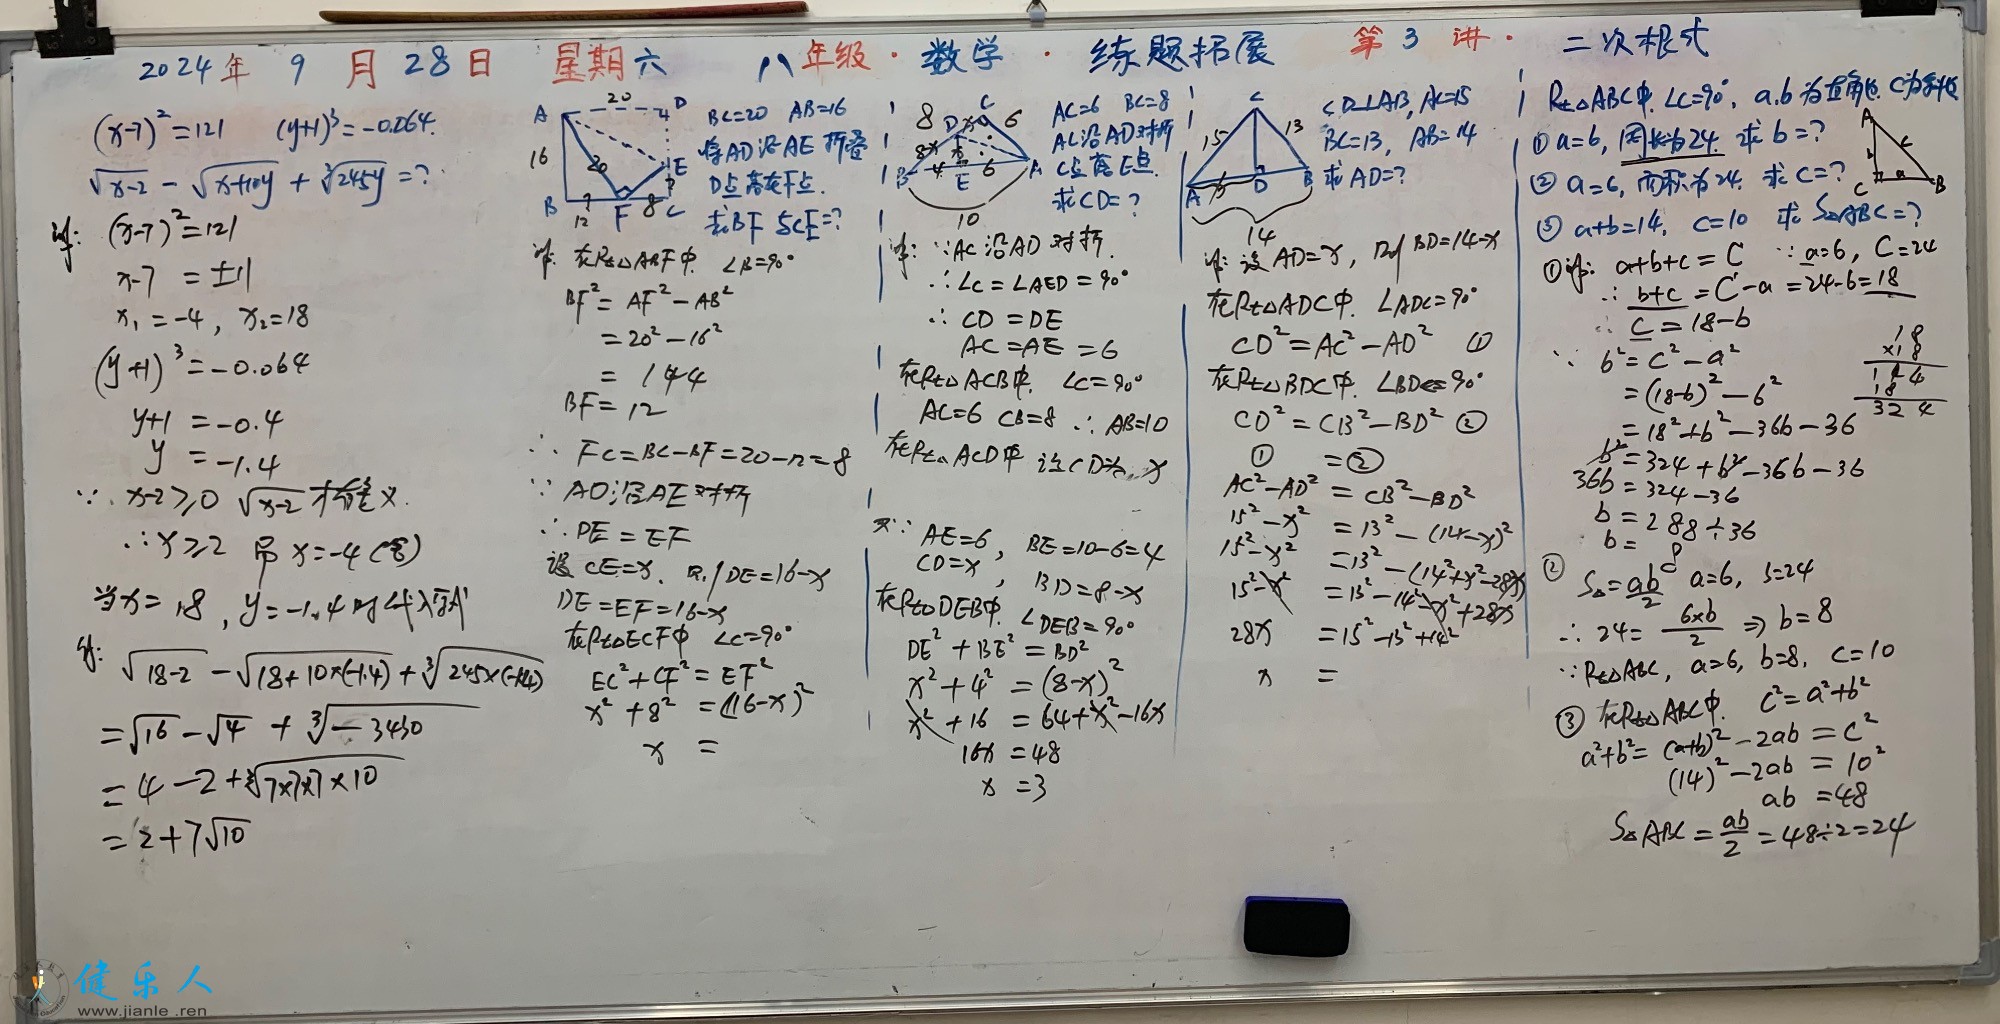 2024年 9月28日 星期六 八年级·数学·练题拓展 第3讲·二次根式
(x-7)²=121 (y+1)³=-0.064.
√(x-2) - √(x+10y) + ³√(245y) =?
解: (x-7)²=121
x-7 = ±11
x₁=-4, x₂=18
(y+1)³=-0.064
y+1 =-0.4
y =-1.4
∵ x-2≥0 √(x-2) 才有意义.
∴x≥2 而 x=-4(舍)
当x=18, y=-1.4时代入原式
得:
√(18-2) - √(18+10×(-1.4)) + ³√(245×(-1.4))
=√16 - √4 + ³√(-3430)
=4-2+³√(7×7×7×10)
=2+7√10
20
A D
16 20 E
B 12 F 8 C
BC=20 AB=16
将AD沿AE折叠
D点落在F点.
求BF与CE=?
解: 在Rt△ABF中. ∠B=90°
BF²=AF²-AB²
=20²-16²
=144
BF=12
∴ FC=BC-BF=20-12=8
∵ AD沿AE对折
∴DE=EF
设CE=x. 则DE=16-x
DE=EF=16-x
在Rt△ECF中 ∠C=90°
EC²+CF²=EF²
x²+8²=(16-x)²
x =
8 D x C 6
8-x x
B 4 E 6 A
10
AC=6 BC=8
AC沿AD对折
C点落E点.
求CD=?
解: ∵AC沿AD对折.
∴∠C=∠AED=90°
∴ CD=DE
AC=AE=6
在Rt△ACB中. ∠C=90°
AC=6 CB=8 ∴AB=10
在Rt△ACD中 设CD为x
又∵ AE=6, BE=10-6=4
CD=x, BD=8-x
在Rt△DEB中. ∠DEB=90°
DE²+BE²=BD²
x²+4²=(8-x)²
x²+16=64+x²-16x
16x=48
x=3
C
15 13
A x D B
14
CD⊥AB, AC=15
BC=13, AB=14
求AD=?
解: 设AD=x, 则BD=14-x
在Rt△ADC中. ∠ADC=90°
CD²=AC²-AD² ①
在Rt△BDC中. ∠BDC=90°
CD²=CB²-BD² ②
① =②
AC²-AD²=CB²-BD²
15²-x²=13²-(14-x)²
15²-x²=13²-(14²+x²-28x)
15²-x²=13²-14²-x²+28x
28x=15²-13²+14²
x =
Rt△ABC中. ∠C=90°. a.b为直角边. C为斜边
①a=6, 周长为24. 求b=?
②a=6, 面积为24. 求c=?
③a+b=14, c=10 求S△ABC=?
A
b c
C a B
①解: a+b+c=C ∵a=6, C=24
∴ b+c=C-a=24-6=18
∴ C=18-b
∵ b²=c²-a²
=(18-b)²-6²
=18²+b²-36b-36
b²=324+b²-36b-36
36b=324-36
b=288÷36
b=8
18
×18
144
18
324
② S△=ab/2 a=6, S=24
∴ 24= 6×b/2 ⇒ b=8
∵Rt△ABC, a=6, b=8, c=10
③ 在Rt△ABC中. c²=a²+b²
a²+b²=(a+b)²-2ab=c²
(14)²-2ab=10²
ab=48
S△ABC=ab/2=48÷2=24
健乐人
www.jianle.ren